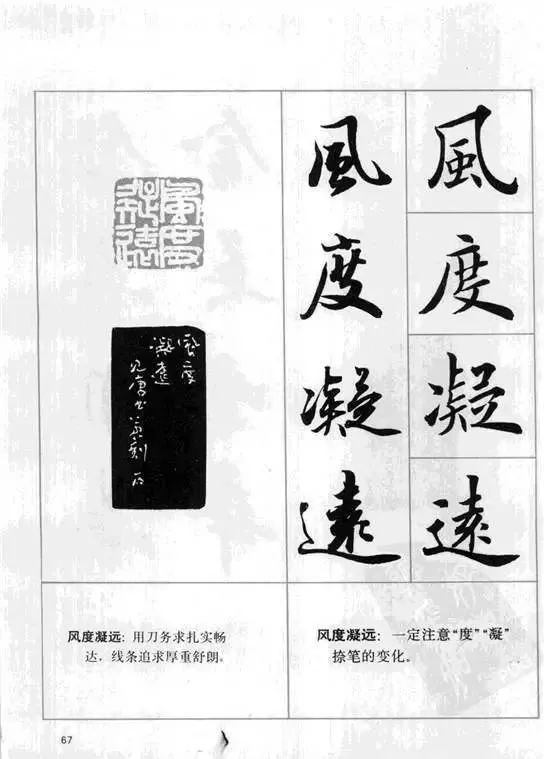 風度凝遠
風度凝遠
風度
凝遠
風度凝遠
风度凝远：用刀务求扎实畅
达，线条追求厚重舒朗。
风度凝远：一定注意“度”“凝”
捺笔的变化。
67